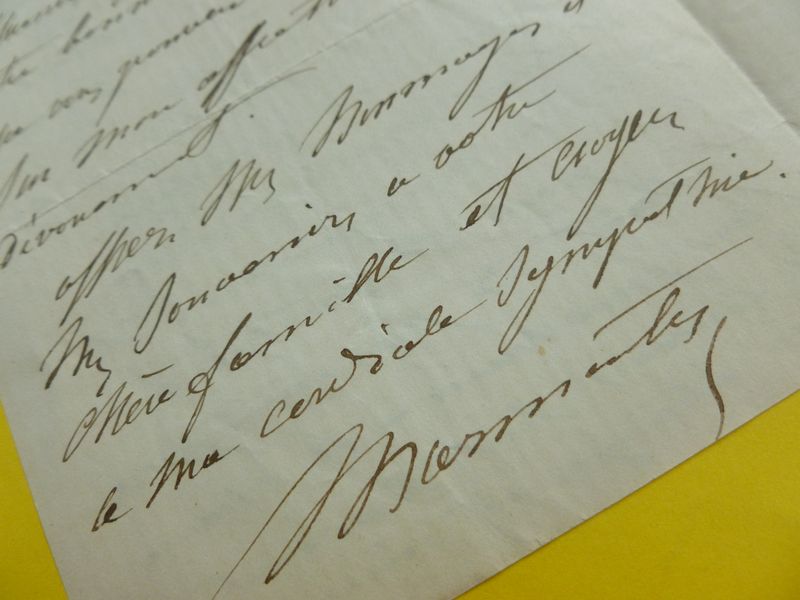 bonn
vous
sur mon affect
dévouement.
offrez mes hommages et
mes souvenirs a votre
chère famille et croyez
a ma cordiale sympathie.
Marmontel